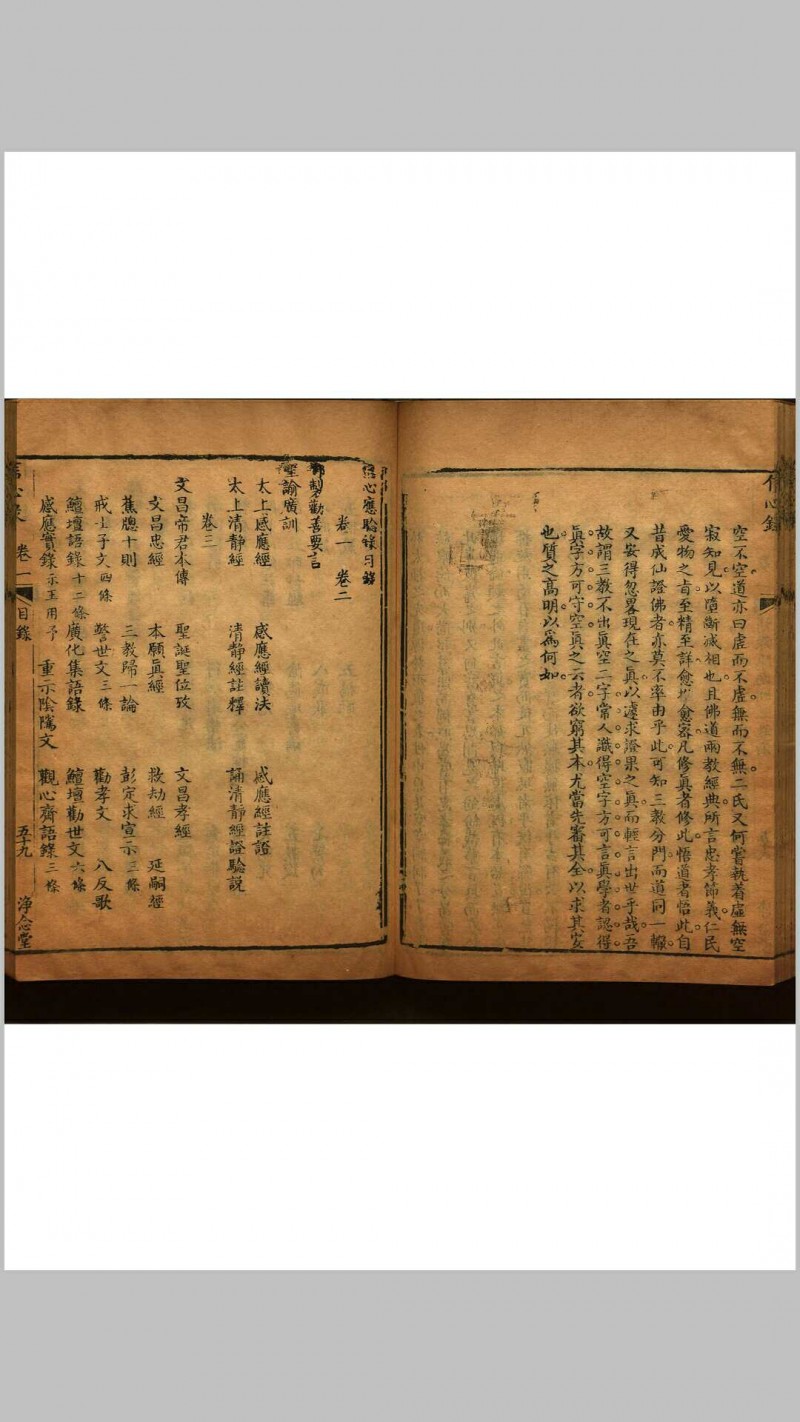 信心錄
空不空道亦曰虛而不虛無而不無二氏又何嘗執著虛無空
寂知見以墮斷滅相也且佛道兩教經典所言忠孝節義仁民
愛物之旨至精至詳愈愈容凡修眞者修此悟道者悟此自
昔成仙證佛者亦莫不率由乎此可知三教分門而道同一轍
又安得忽畧現在之眞以遽求證果之眞而輕言出世乎哉吾
故謂三教不出眞空二字常人識得空字方可言眞學者認得
眞字方可守空眞之云者欲窮其本尤當先審其全以求其安
也質之高明以爲何如
信心應驗錄目錄
卷一 卷二
御製勸善要言
聖諭廣訓
太上感應經 感應經讀法 感應經註證
太上清靜經 清靜經註釋 誦清靜經證驗説
卷三
文昌帝君本傳 聖誕聖位攷 文昌孝經
文昌忠經 本願眞經 救劫經 延嗣經
蕉牕十則 三教歸一論 彭定求宣示三條
戒士子文四條 警世文三條 勸孝文 八反歌
鱣壇語錄十二條 廣化集語錄 鱣壇勸世文六條
感應實錄示王用予 重示陰隲文 觀心齋語錄三條
信心錄 卷一 目錄 五十九 淨念堂